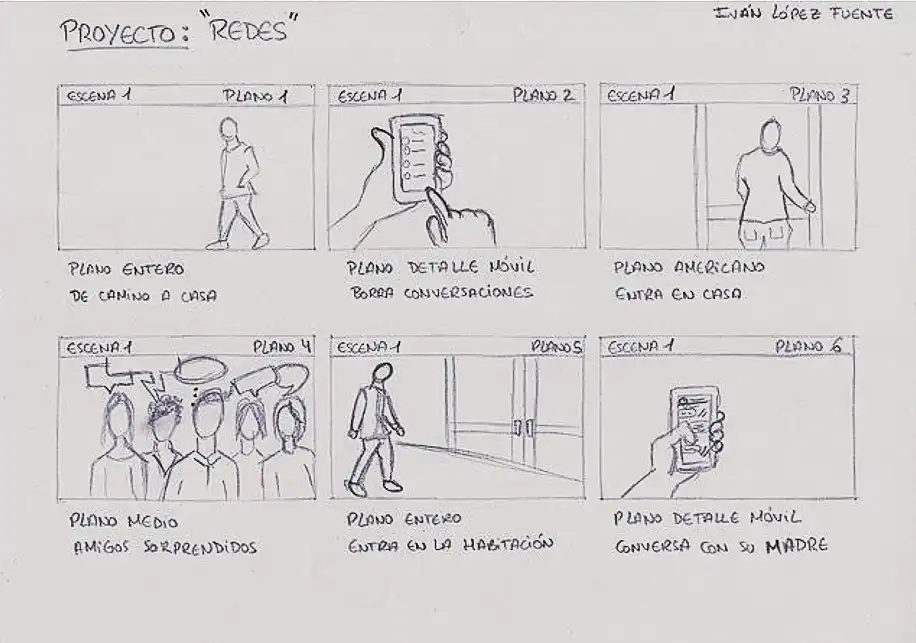 IVÁN LÓPEZ FUENTE
PROYECTO: "REDES"
ESCENA 1 PLANO 1
PLANO ENTERO
DE CAMINO A CASA
ESCENA 1 PLANO 2
PLANO DETALLE MÓVIL
BORRA CONVERSACIONES
ESCENA 1 PLANO 3
PLANO AMERICANO
ENTRA EN CASA
ESCENA 1 PLANO 4
PLANO MEDIO
AMIGOS SORPRENDIDOS
ESCENA 1 PLANO 5
PLANO ENTERO
ENTRA EN LA HABITACIÓN
ESCENA 1 PLANO 6
PLANO DETALLE MÓVIL
CONVERSA CON SU MADRE